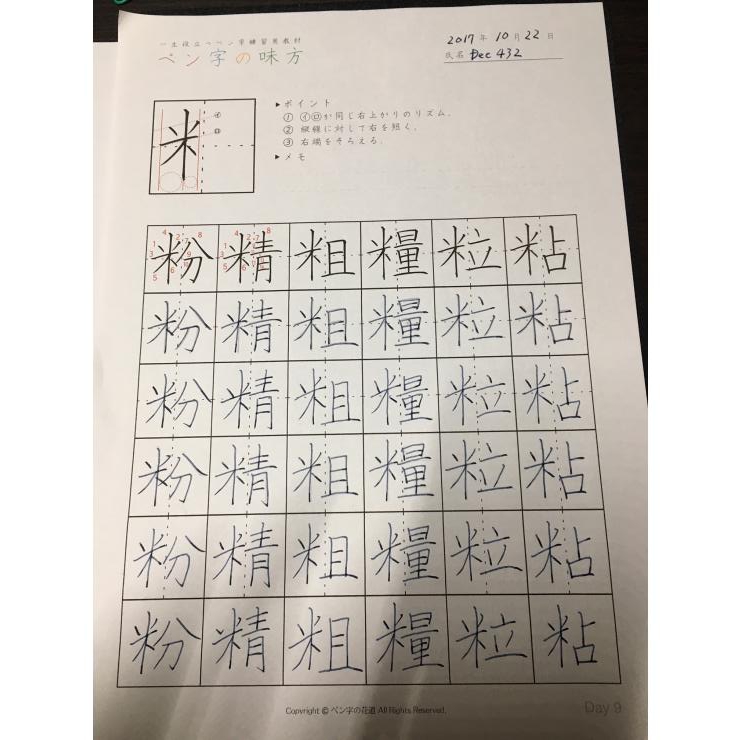 一生役立つペン字練習用教材
ペン字の味方
2017年10月22日
氏名 Dec 432
米
イ
ロ
▶ポイント
① ㋑㋺が同じ右上がりのリズム。
② 縦線に対して右を短く。
③ 右端をそろえる。
▶メモ
粉 精 粗 糧 粒 粘
粉 精 粗 糧 粒 粘
粉 精 粗 糧 粒 粘
粉 精 粗 糧 粒 粘
粉 精 粗 糧 粒 粘
粉 精 粗 糧 粒 粘
Copyright © ペン字の花道 All Rights Reserved.
Day 9